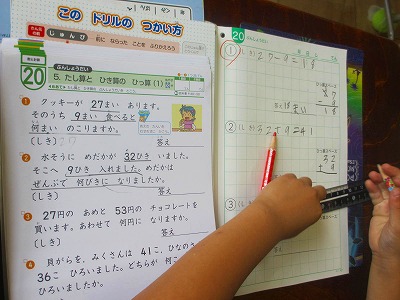 この ドリルの つかい方
じゅんび
前に ならった ことを ふりかえろう
ぶんしょうだい
20
5. たし算と ひき算の ひっ算 (1)
1 クッキーが 27まい あります。
そのうち 9まい 食べると
何まい のこりますか。
(しき)
答え
2 水そうに めだかが 32ひき いました。
そこへ 9ひき 入れました。めだかは
ぜんぶで 何びきに なりましたか。
(しき)
答え
3 27円の あめと 53円の チョコレートを
買います。あわせて 何円に なりますか。
(しき)
答え
4 貝がらを、みくさんは 41こ、ひなのさ
36こ ひろいました。どちらが 何こ
ひろいましたか。
20
① (しき) 27-9=18
27
- 9
18
答え 18まい
② (しき) 32+9=41
32
+ 9
③ (しき)